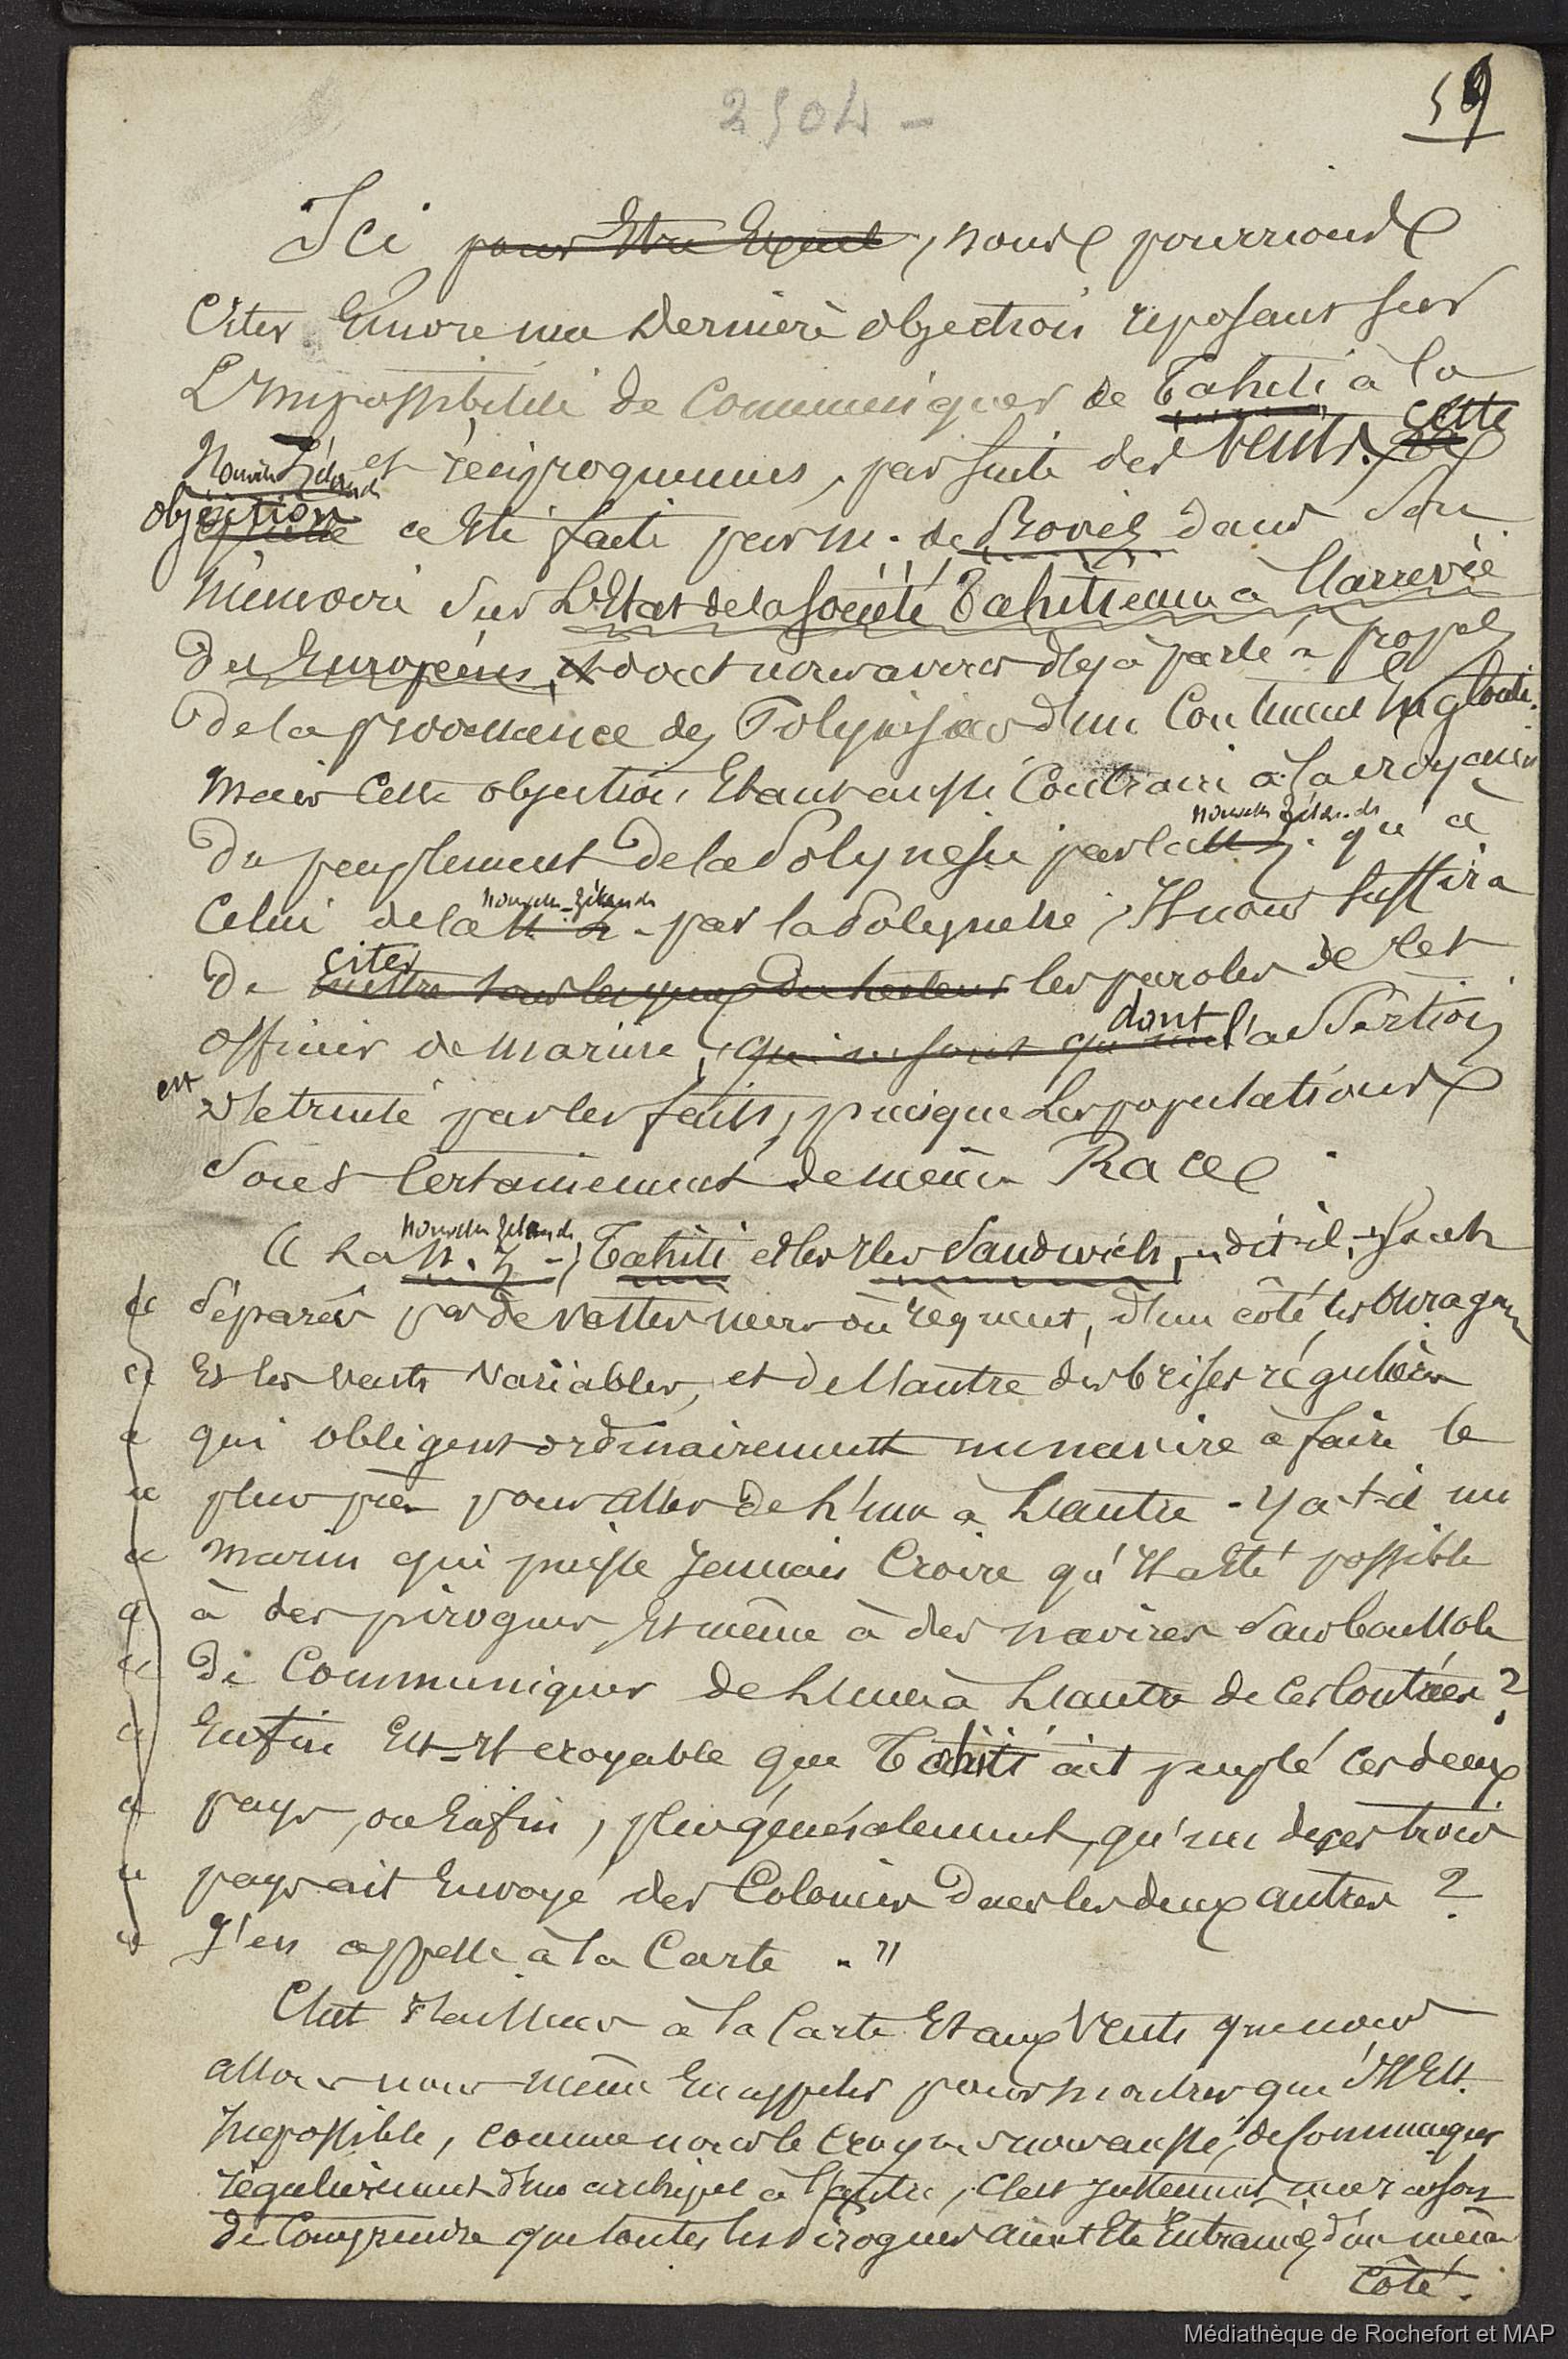 2504 -
59
Ici pour Etre Exact, nous pourrions
Citer Encore une Derniere objection reposant sur
L'Impossibilité de Communiquer de Tahiti à la
Nouvelle Zélande et réciproquement, par suite des vents. cette
objection a Eté faite par M. de Bovis dans son
Mémoire sur L'Etat de la Société Tahitienne à l'arrivée
Des Européens, dont nous avons déjà parlé à propos
De la provenance des Polynésiens d'un Continent Englouti.
Mais Cette objection, Etant aussi Contraire à la croyance
Du peuplement De la Polynésie par la N. Z. nouvelle Zélande qu'à
Celui de la N. Z. nouvelle-Zélande par la Polynésie, Il nous suffira
De mettre sous les yeux du lecteur citer les paroles de Cet
officier de Marine, qui ne sont qu'une dont l'assertion
est detruite par les faits, puisque Les populations
sont Certainement de même Race.
" La N. Z. nouvelle Zélande, Tahiti et les Iles Sandwich, dit-il, sont
" séparées par de vastes mers où règnent, d'un côté les orages
" Et les vents variables, et de l'autre des brises régulières
" qui obligent ordinairement un navire à faire le
" plus près pour aller de l'une à L'autre - Y a-t-il un
" marin qui puisse Jamais Croire qu'Il a Eté possible
" à des pirogues Et même à des navires sans boussole
" De Communiquer de L'une à L'autre de Ces Contrées ?
" Enfin Est-Il croyable que Tahiti ait peuplé Ces deux
" pays, ou Enfin, plus généralement, qu'un de ces trois
" pays ait Envoyé des Colonies Dans les deux autres ?
" J'en appelle à la Carte . "
C'est d'ailleurs à la Carte Et aux Vents que nous
allons nous même En appeler pour montrer que s'Il Est
Impossible, comme nous le croyons nous aussi, de Communiquer
régulièrement d'un archipel à l'autre, C'est justement une raison
De Comprendre que toutes les Pirogues aient Eté Entrainées d'un même
Côté.
Médiathèque de Rochefort et MAP